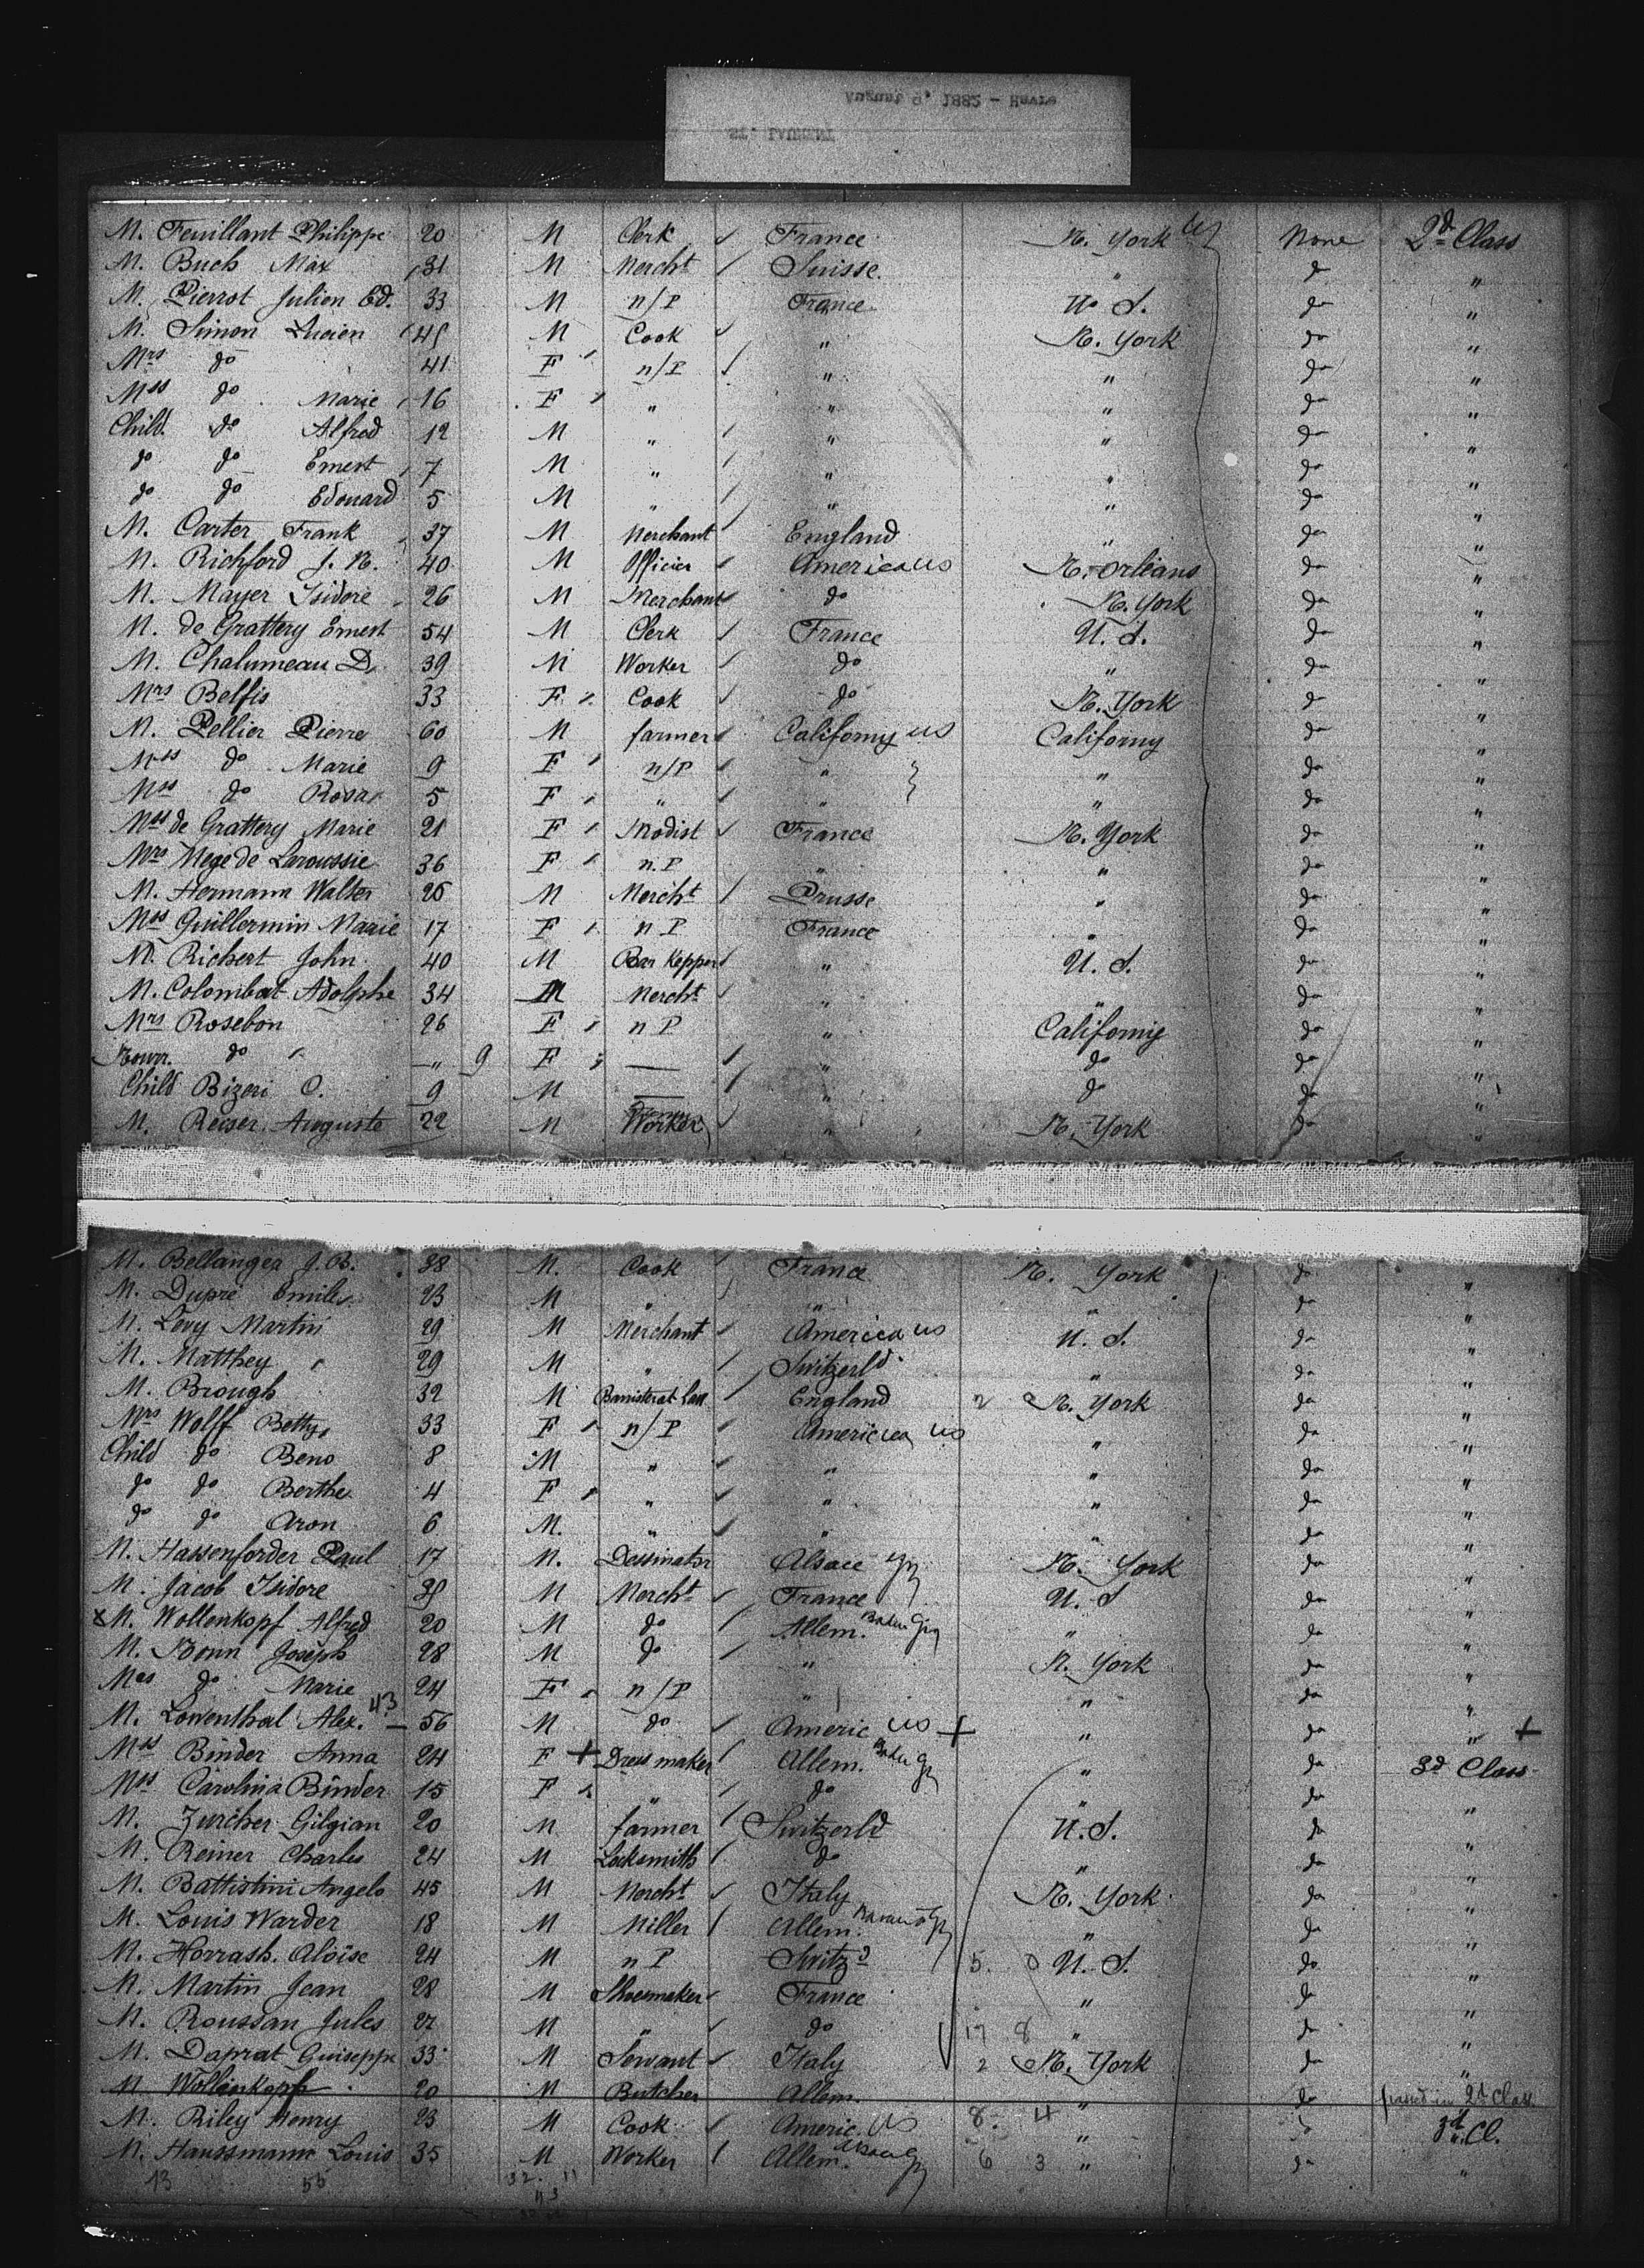 August 9, 1882 - Havre
ST. LAURENT
M. Feuillant Philippe 20 M Clerk France N. York US None 2d Class
M. Buch Max 31 M Mercht Suisse. " do "
M. Pierrot Julien Ed. 33 M n/P France U. S. do "
M. Simon Lucien 45 M Cook " N. York do "
Mrs do 41 F n/P " " do "
Mss do Marie 16 F " " " do "
Child do Alfred 12 M " " " do "
do do Ernest 7 M " " " do "
do do Edouard 5 M " " " do "
M. Carter Frank 37 M Merchant England " do "
M. Richford J. N. 40 M Officier America US N. Orléans do "
M. Mayer Isidore 26 M Merchant do N. York do "
M. de Grattery Ernest 54 M Clerk France U. S. do "
M. Chalumeau D. 39 M Worker do " do "
Mrs Belfis 33 F Cook do N. York do "
M. Pellier Pierre 60 M farmer Californy US Californy do "
Mss do Marie 9 F n/P " " do "
Mss do Rosa 5 F " " " do "
Mss de Grattery Marie 21 F Modist France N. York do "
Mrs Mege de Laroussie 36 F n.P " " do "
M. Hermann Walter 25 M Mercht Prusse " do "
Mss Guillermin Marie 17 F n P France " do "
M. Richert John 40 M Bar Kepper " U. S. do "
M. Colombat Adolphe 34 M Mercht " " do "
Mrs Rosebon 26 F n P " Californy do "
Nourr. do " 9 F — " do do "
Child Bizeri O. 9 M — " do do "
M. Reiser Auguste 22 M Worker " N. York do "
M. Bellanger J. B. 38 M. Cook France N. York do "
M. Dupré Emile 23 M " " " do "
M. Levy Martin 29 M Merchant America US U. S. do "
M. Matthey 29 M " Switzerld. " do "
M. Brough 32 M Barristerat Law England 2 N. York do "
Mrs Wolff Betty 33 F n/P America US " do "
Child do Beno 8 M " " " do "
do do Berthe 4 F " " " do "
do do Aron 6 M. " " " do "
M. Hassenforder Paul 17 M. Dessinator Alsace Gy N. York do "
M. Jacob Isidore 39 M Mercht France U. S do "
x M. Wollenkopf Alfred 20 M do Allem. Baden Gy " do "
M. Bonn Joseph 28 M do " N. York do "
Mrs do Marie 24 F n/P " " do "
M. Lowenthal Alex. 43 — 56 M do Americ US + " do " +
Mss Binder Anna 24 F + Dress maker Allem. Baden Gy " do 3d Class
Mss Carolina Binder 15 F " do " do "
M. Zurcher Gilgian 20 M farmer Switzerld U. S. do "
M. Reiner Charles 24 M Locksmith do " do "
M. Battistini Angelo 45 M Mercht Italy N. York do "
M. Louis Warder 18 M Miller Allem. Bavaria Gy " do "
M. Horrash. Aloïse 24 M n P Switzd 5. 0 U. S. do "
M. Martin Jean 28 M Shoemaker France " do "
M. Roussan Jules 27 M " do 17 8 " do "
M. Daprat Guiseppe 33 M Servant Italy 2 N. York do "
M Wollenkopf 20 M Butcher Allem. " do passed in 2d Class
M. Riley Henry 23 M Cook Americ. US 8. 4 " do 3d Cl.
M. Haussmann Louis 35 M Worker Allem. Alsace Gy 6 3 " do "
43 55 32. 11
43